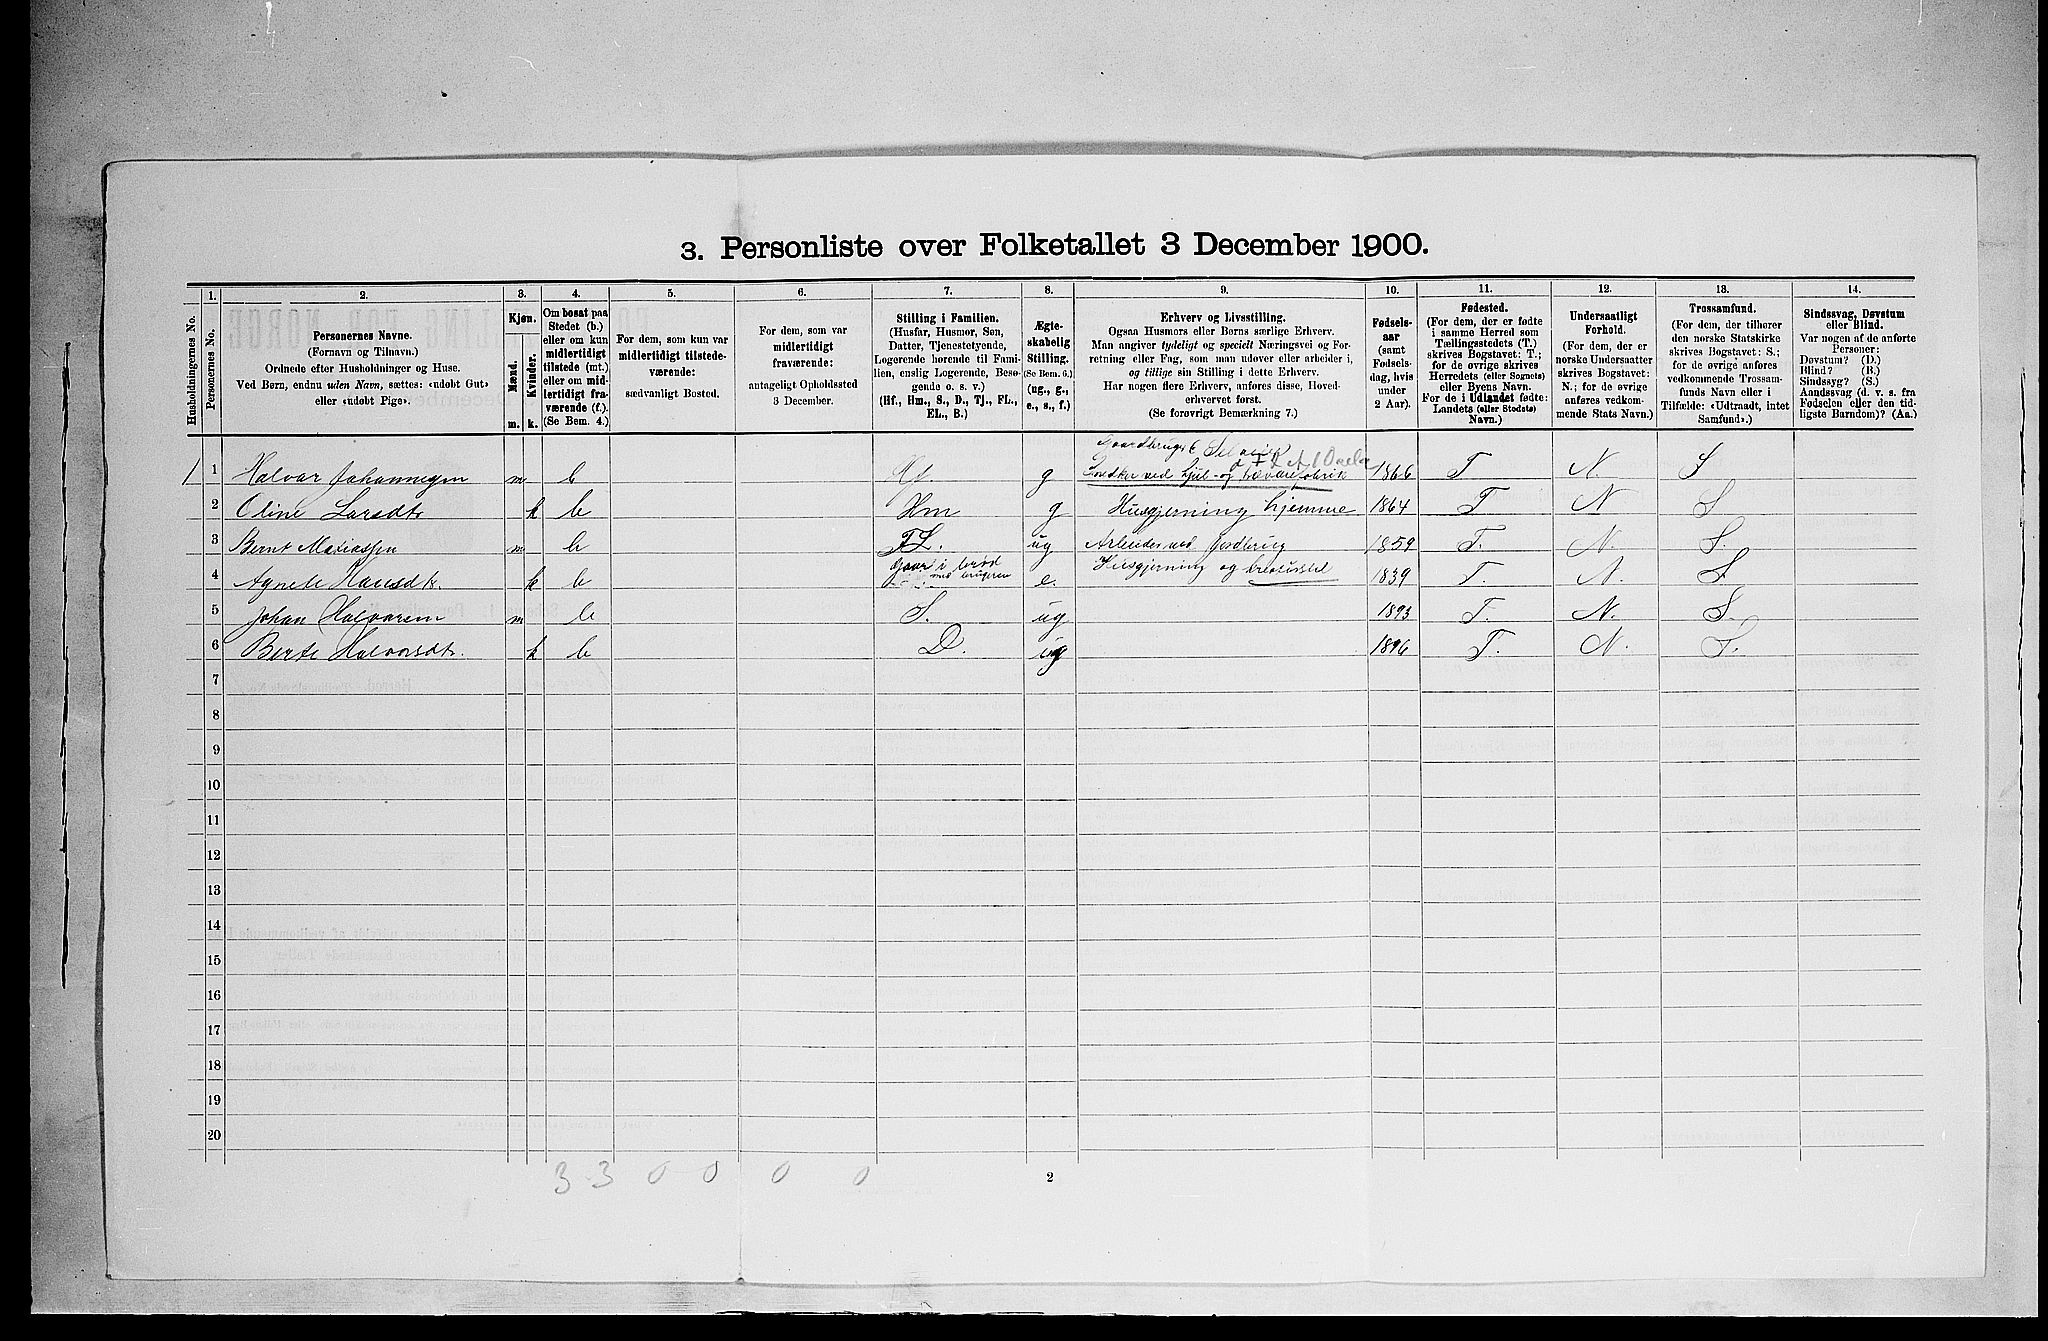 3. Personliste over Folketallet 3 December 1900.
Husholdningernes No.
1.
Personernes No.
2.
Personernes Navne.
(Fornavn og Tilnavn.)
Ordnede efter Husholdninger og Huse.
Ved Børn, endnu uden Navn, sættes: «udøbt Gut»
eller «udøbt Pige».
3.
Kjøn.
Mænd.
m.
Kvinder.
k.
4.
Om bosat paa
Stedet (b.)
eller om kun
midlertidigt
tilstede (mt.)
eller om mid-
lertidigt fra-
værende (f.).
(Se Bem. 4.)
5.
For dem, som kun var
midlertidigt tilstede-
værende:
sædvanligt Bosted.
6.
For dem, som var
midlertidigt
fraværende:
antageligt Opholdssted
3 December.
7.
Stilling i Familien.
(Husfar, Husmor, Søn,
Datter, Tjenestetyende,
Logerende hørende til Fami-
lien, enslig Logerende, Besø-
gende o. s. v.)
(Hf., Hm., S., D., Tj., FL.,
EL., B.)
8.
Ægte-
skabelig
Stilling.
(Se Bem. 6.)
(ug., g.,
e., s., f.)
9.
Erhverv og Livsstilling.
Ogsaa Husmors eller Børns særlige Erhverv.
Man angiver tydeligt og specielt Næringsvei og For-
retning eller Fag, som man udøver eller arbeider i,
og tillige sin Stilling i dette Erhverv.
Har nogen flere Erhverv, anføres disse, Hoved-
erhvervet først.
(Se forøvrigt Bemærkning 7.)
10.
Fødsels-
aar
(samt
Fødsels-
dag, hvis
under
2 Aar).
11.
Fødested.
(For dem, der er fødte
i samme Herred som
Tællingsstedets (T.)
skrives Bogstavet: T.;
for de øvrige skrives
Herredets (eller Sognets)
eller Byens Navn.
For de i Udlandet fødte:
Landets (eller Stedets)
Navn.)
12.
Undersaatligt
Forhold.
(For dem, der er
norske Undersaatter
skrives Bogstavet:
N.; for de øvrige
anføres vedkom-
mende Stats Navn.)
13.
Trossamfund.
(For dem, der tilhører
den norske Statskirke
skrives Bogstavet: S.;
for de øvrige anføres
vedkommende Trossam-
funds Navn eller i
Tilfælde: «Udtraadt, intet
Samfund».)
14.
Sindssvag, Døvstum
eller Blind.
Var nogen af de anførte
Personer:
Døvstum? (D.)
Blind? (B.)
Sindssyg? (S.)
Aandssvag (d. v. s. fra
Fødselen eller den tid-
ligste Barndom)? (Aa.)
Gaardbruger Selveier
1 1 Halvar Johannesen m b Hf. g Snedker ved Hjul- og trævarefabrik 1866 T. N. S
2 Oline Larsdtr k b Hm g Husgjerning hjemme 1864 T N S
3 Bernt Matiassen m b FL. ug Arbeider ved jordbrug 1859 T. N. S.
4 Agnete Hansdtr. k b Gaar i brød med brugeren e. Husgjerning og kreaturstel 1839 T. N. S
5 Johan Halvorsen m b S. ug 1893 T. N. S.
6 Berte Halvorsdtr. k b D. ug 1896 T. N. S.
7
8
9
10
11
12
13
14
15
16
17
18
19
20
3 3 0 0 0 0
2